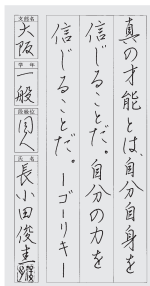 真の才能とは、自分自身を
信じることだ。自分の力を
信じることだ。ーゴーリキー
支部名
大阪
学年
一般
段級位
同人
氏名
長小田俊圭